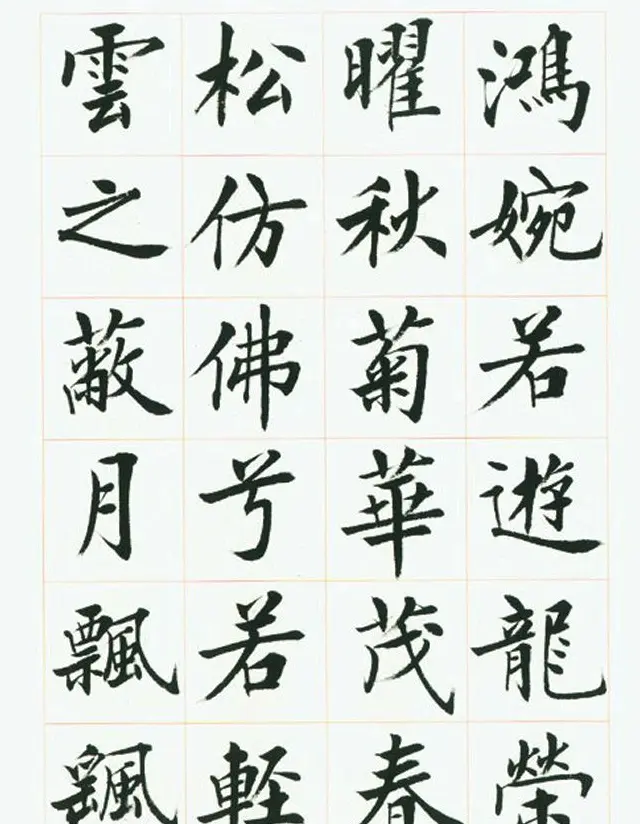 鴻婉若遊龍榮
曜秋菊華茂春
松仿佛兮若軽
雲之蔽月飄飖